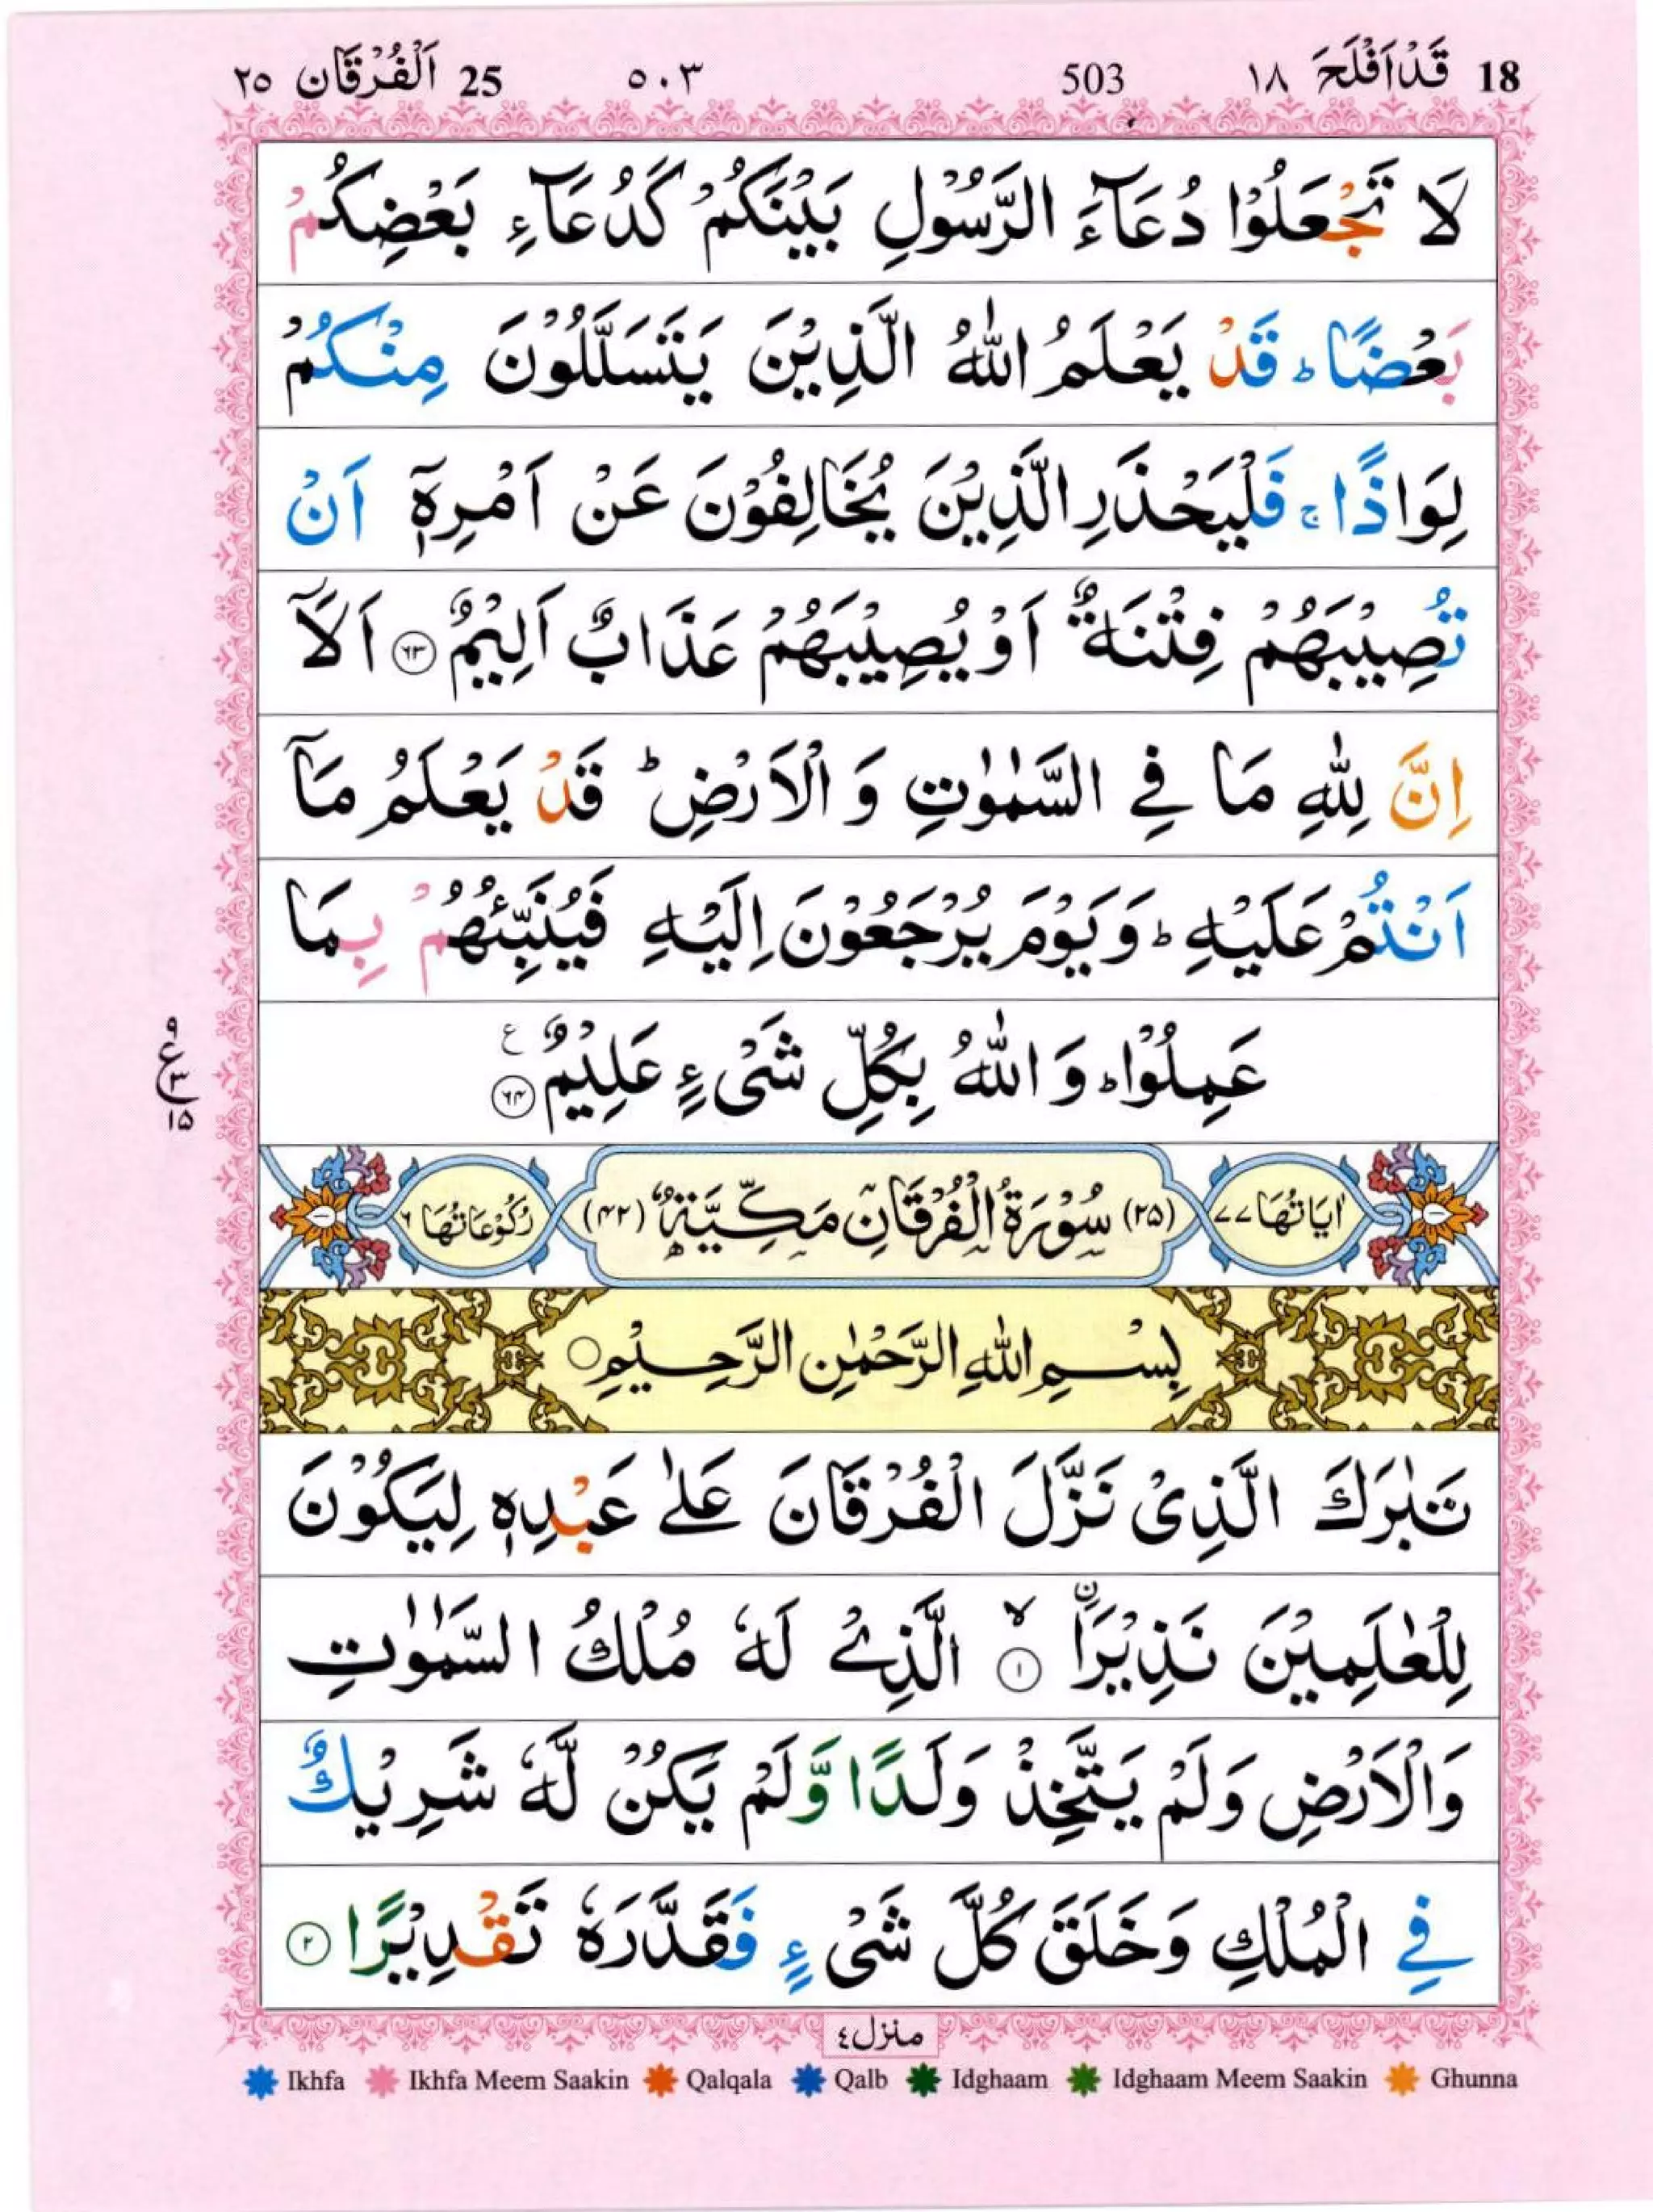 18 قَدْاَفْلَحَ ١٨ 503 ٥٠٣ 25 اَلْفُرْقَان ٢٥
لَا تَجْعَلُوْا دُعَآءَ الرَّسُوْلِ بَيْنَكُمْ كَدُعَآءِ بَعْضِكُمْ
بَعْضًا ؕ قَدْ يَعْلَمُ اللّٰهُ الَّذِيْنَ يَتَسَلَّلُوْنَ مِنْكُمْ
لِوَاذًا ۚ فَلْيَحْذَرِ الَّذِيْنَ يُخَالِفُوْنَ عَنْ اَمْرِهٖۤ اَنْ
تُصِيْبَهُمْ فِتْنَةٌ اَوْ يُصِيْبَهُمْ عَذَابٌ اَلِيْمٌ ﴿۶۳﴾ اَلَاۤ
اِنَّ لِلّٰهِ مَا فِي السَّمٰوٰتِ وَ الْاَرْضِ ؕ قَدْ يَعْلَمُ مَاۤ
اَنْتُمْ عَلَيْهِ ؕ وَ يَوْمَ يُرْجَعُوْنَ اِلَيْهِ فَيُنَبِّئُهُمْ بِمَا
عَمِلُوْا ؕ وَ اللّٰهُ بِكُلِّ شَیْءٍ عَلِيْمٌ ﴿۶۴﴾ ع
٩ ع ٣ ١٥
اٰيَاتُهَا ٧٧ (٢٥) سُوْرَةُ الْفُرْقَانِ مَكِّيَّةٌ (۴۲) رُكُوْعَاتُهَا ٦
بِسْمِ اللّٰهِ الرَّحْمٰنِ الرَّحِيْمِ
تَبٰرَكَ الَّذِیْ نَزَّلَ الْفُرْقَانَ عَلٰی عَبْدِهٖ لِيَكُوْنَ
لِلْعٰلَمِيْنَ نَذِيْرَاۙ ﴿۱﴾ اۨلَّذِیْ لَهٗ مُلْكُ السَّمٰوٰتِ
وَالْاَرْضِ وَلَمْ يَتَّخِذْ وَلَدًا وَّلَمْ يَكُنْ لَّهٗ شَرِيْكٌ
فِي الْمُلْكِ وَخَلَقَ كُلَّ شَیْءٍ فَقَدَّرَهٗ تَقْدِيْرًا ﴿۲﴾
منزل ٤
Ikhfa Ikhfa Meem Saakin Qalqala Qalb Idghaam Idghaam Meem Saakin Ghunna